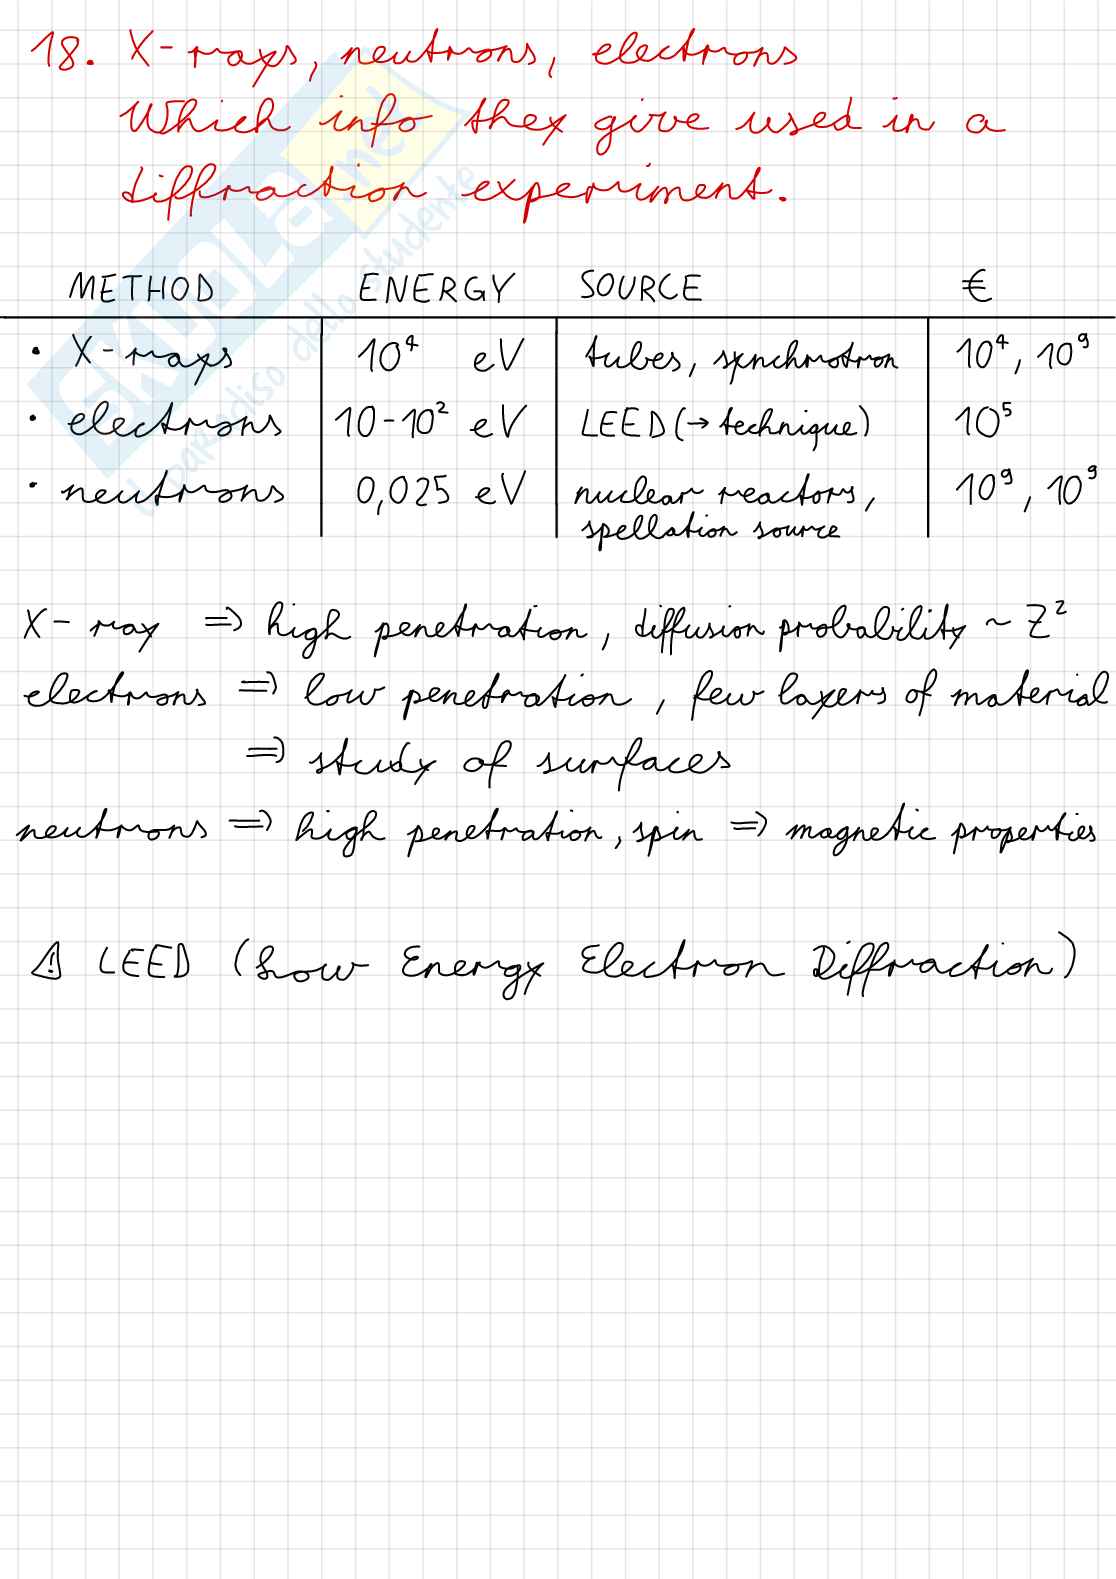 18. X-rays, neutrons, electrons
Which info they give used in a
diffraction experiment.
METHOD ENERGY SOURCE €
• X-rays 10⁴ eV tubes, synchrotron 10⁴, 10⁹
• electrons 10-10² eV LEED (→ technique) 10⁵
• neutrons 0,025 eV nuclear reactors, 10⁹, 10⁹
spellation source
X-ray ⇒ high penetration, diffusion probability ~ Z²
electrons ⇒ low penetration, few layers of material
⇒ study of surfaces
neutrons ⇒ high penetration, spin ⇒ magnetic properties
⚠ LEED (Low Energy Electron Diffraction)
SKUOLA.net
il paradiso dello studente